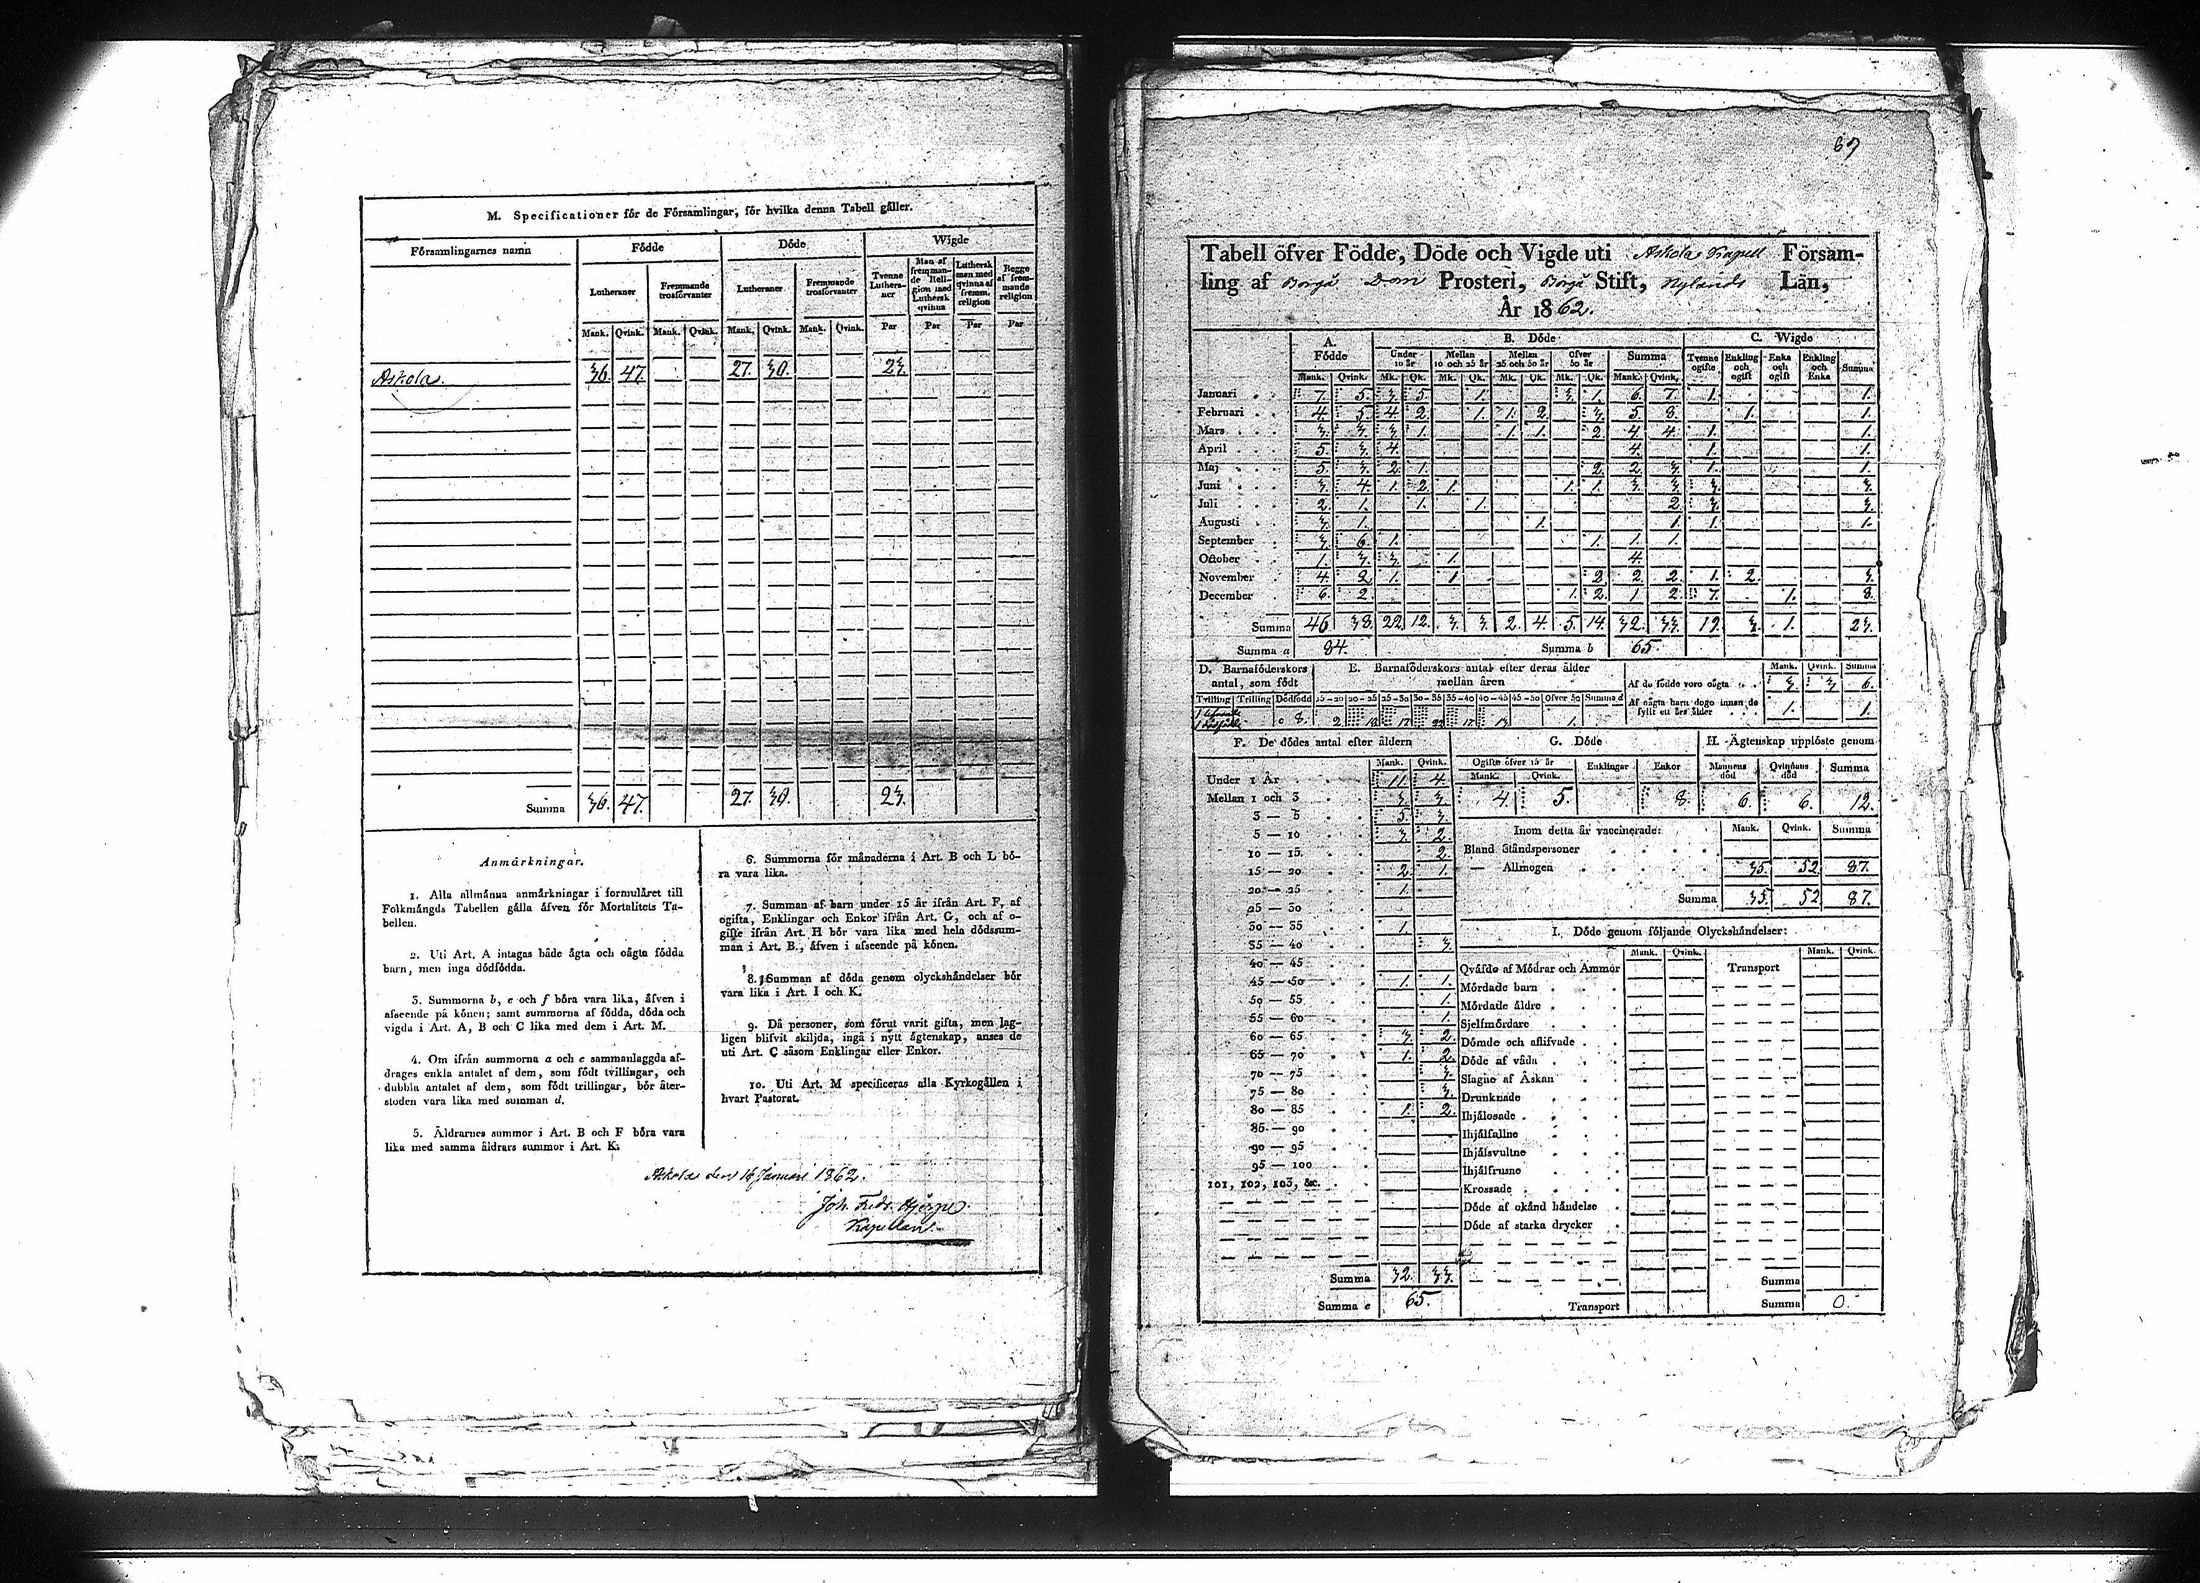 M. Specificationer för de Församlingar, för hvilka denna Tabell gäller.
Församlingarnes namn Födde Döde Wigde
Lutheraner Fremmande trosförvanter Lutheraner Fremmande trosförvanter Tvenne Lutheraner Man af fremmande Religion med Luthersk qvinna Luthersk man med qvinna af fremm. religion Begge af fremmande religion
Mank. Qvink. Mank. Qvink. Mank. Qvink. Mank. Qvink. Par Par Par Par
Askola. 36. 47. 27. 30. 23.
Summa 36. 47. 27. 30. 23.
Anmärkningar.
1. Alla allmänna anmärkningar i formuläret till
Folkmängds Tabellen gälla äfven för Mortalitets Ta-
bellen.
2. Uti Art. A intagas både ägta och oägta födda
barn, men inga dödfödda.
3. Summorna b, e och f böra vara lika, äfven i
afseende på könen; samt summorna af födda, döda och
vigda i Art. A, B och C lika med dem i Art. M.
4. Om ifrån summorna a och c sammanlaggda af-
drages enkla antalet af dem, som födt tvillingar, och
dubbla antalet af dem, som födt trillingar, bör åter-
stoden vara lika med summan d.
5. Åldrarnes summor i Art. B och F böra vara
lika med samma åldrars summor i Art. K.
6. Summorna för månaderna i Art. B och L bö-
ra vara lika.
7. Summan af barn under 15 år ifrån Art. F, af
ogifta, Enklingar och Enkor ifrån Art. G, och af o-
gifte ifrån Art. H bör vara lika med hela dödssum-
man i Art. B., äfven i afseende på könen.
8. Summan af döda genom olyckshändelser bör
vara lika i Art. I och K.
9. Då personer, som förut varit gifta, men lag-
ligen blifvit skiljda, ingå i nytt ägtenskap, anses de
uti Art. C såsom Enklingar eller Enkor.
10. Uti Art. M specificeras alla Kyrkogällen i
hvart Pastorat.
Askola den 16 Januari 1862.
Joh. Fedr. Hjerpe
Kapellan.
67
Tabell öfver Födde, Döde och Vigde uti Askola Kapell Försam-
ling af Borgå Dom Prosteri, Borgå Stift, Nylands Län,
År 1862.
A. Födde B. Döde C. Wigde
Under 10 år Mellan 10 och 25 år Mellan 25 och 50 år Öfver 50 år Summa Tvenne ogifte Enkling och ogift Enka och ogift Enkling och Enka Summa
Mank. Qvink. Mk. Qk. Mk. Qk. Mk. Qk. Mk. Qk. Mank. Qvink.
Januari 7. 5. 3. 5. 1. 3. 1. 6. 7. 1. 1.
Februari 4. 5. 4. 2. 1. 1. 2. 3. 5. 8. 1. 1.
Mars 3. 3. 3. 1. 1. 1. 2. 4. 4. 1. 1.
April 5. 3. 4. 4. 1. 1.
Maj 5. 3. 2. 1. 2. 2. 3. 1. 1.
Juni 3. 4. 1. 2. 1. 1. 1. 3. 3. 3. 3.
Juli 2. 1. 1. 1. 2. 3. 3.
Augusti 3. 1. 1. 1. 1. 1.
September 3. 6. 1. 1. 1. 1.
October 1. 3. 3. 1. 4.
November 4. 2. 1. 1. 2. 2. 2. 1. 2. 3.
December 6. 2. 1. 2. 1. 2. 7. 1. 8.
Summa 46 38. 22. 12. 3. 3. 2. 4. 5. 14. 32. 33. 19. 3. 1. 23.
Summa a 84. Summa b 65.
D. Barnaföderskors antal, som födt E. Barnaföderskors antal efter deras ålder mellan åren Mank. Qvink. Summa
Af de födde voro oägta 3. 3. 6.
Tvilling Trilling Dödfödd 15—20 20—25 25—30 30—35 35—40 40—45 45—50 Öfver 50 Summa d
Af oägta barn dogo innan de fyllt ett års ålder 1. 1.
8. 2. 18 17 22 17 13 1.
F. De dödes antal efter åldern
Mank. Qvink.
Under 1 År 11. 4.
Mellan 1 och 3 3. 3.
3 — 5 5. 3.
5 — 10 3. 2.
10 — 15. 2.
15 — 20 2. 1.
20 — 25 1.
25 — 30
30 — 35 1.
35 — 40 3.
40 — 45
45 — 50 1. 1.
50 — 55 1.
55 — 60 1.
60 — 65 3. 2.
65 — 70 1. 2.
70 — 75 3.
75 — 80 3.
80 — 85 1. 2.
85 — 90
90 — 95
95 — 100
101, 102, 103, &c.
Summa 32. 33.
Summa e 65.
G. Döde H. Ägtenskap upplöste genom
Ogifte öfver 15 år Enklingar Enkor Mannens död Qvinnans död Summa
Mank. Qvink.
4. 5. 8. 6. 6. 12.
Inom detta år vaccinerade: Mank. Qvink. Summa
Bland Ståndspersoner
— Allmogen 35. 52. 87.
Summa 35. 52 87.
I. Döde genom följande Olyckshändelser:
Mank. Qvink. Mank. Qvink.
Qväfde af Mödrar och Ammor Transport
Mördade barn
Mördade äldre
Sjelfmördare
Dömde och aflifvade
Döde af våda
Slagne af Åskan
Drunknade
Ihjälosade
Ihjälfallne
Ihjälsvultne
Ihjälfrusne
Krossade
Döde af okänd händelse
Döde af starka drycker
Summa
Transport Summa 0.